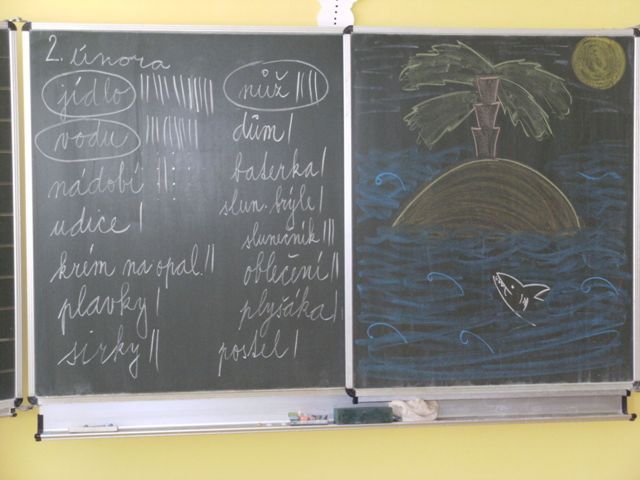 2. února
jídlo
vodu
nádobí
udice
krém na opal.
plavky
sirky
nůž
dům
baterka
slun. brýle
slunečník
oblečení
plyšáka
postel